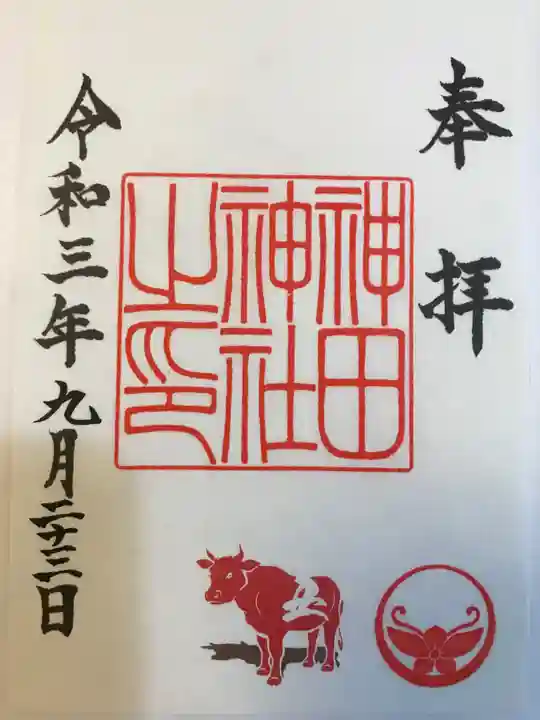 奉拝
神田
神社
之印
丑
令和三年九月二十三日